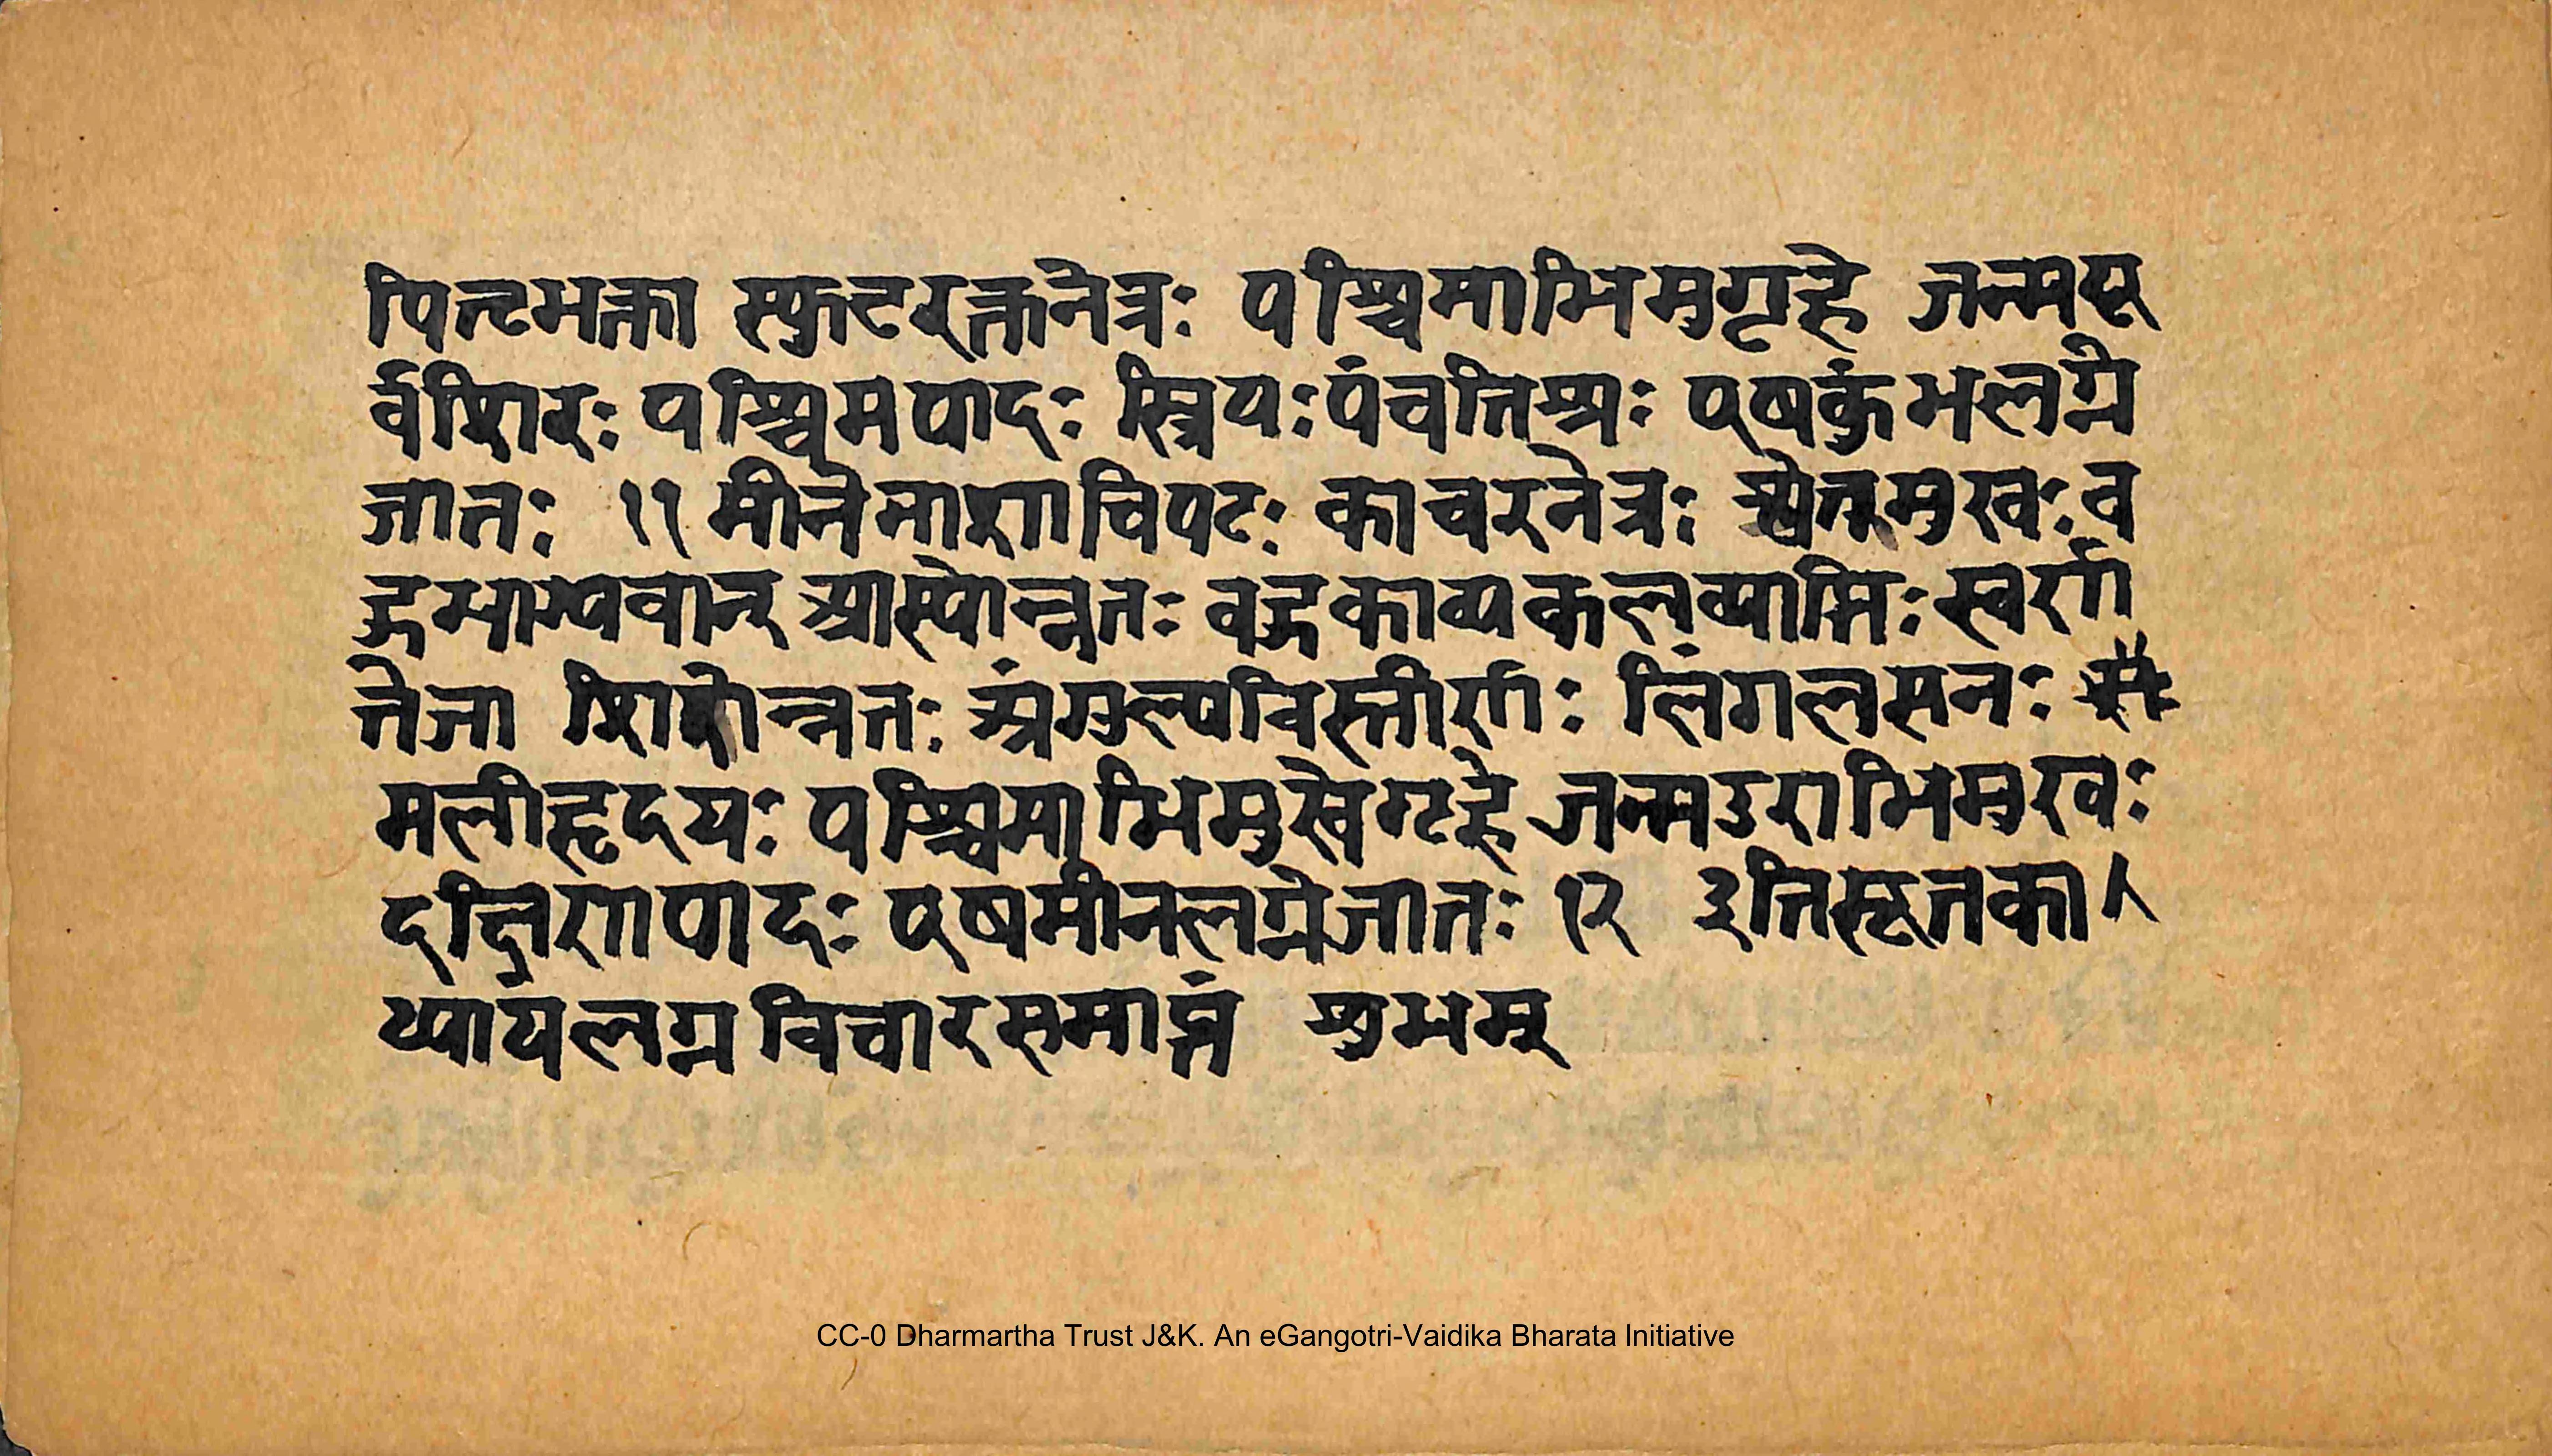 पितृभक्ता स्फुटरक्तनेत्रः पश्चिमाभिमगृहे जन्मपू
र्वशिरः पश्चिमपादः स्त्रियःपंचतिश्रः पुषकुंभलग्ने
जातः ११ मीनेनाशाचिपटः काचरनेत्रः मुखःव
हुभाग्यवान् आस्योन्नतः वहुकाव्यकलव्याप्तिः स्वर्ण
तेजा शिरोन्नतः अंगुल्यविस्तीर्णः लिंगलसनः
मलीहृदयः पश्चिमाभिमुखेगृहे जन्मउराभिमुखः
दक्षिणपादः पुषमीनलग्नेजातः १२ इतिसूतका
ध्यायंलग्नविचारसमाप्तं शुभम्
CC-0 Dharmartha Trust J&K. An eGangotri-Vaidika Bharata Initiative